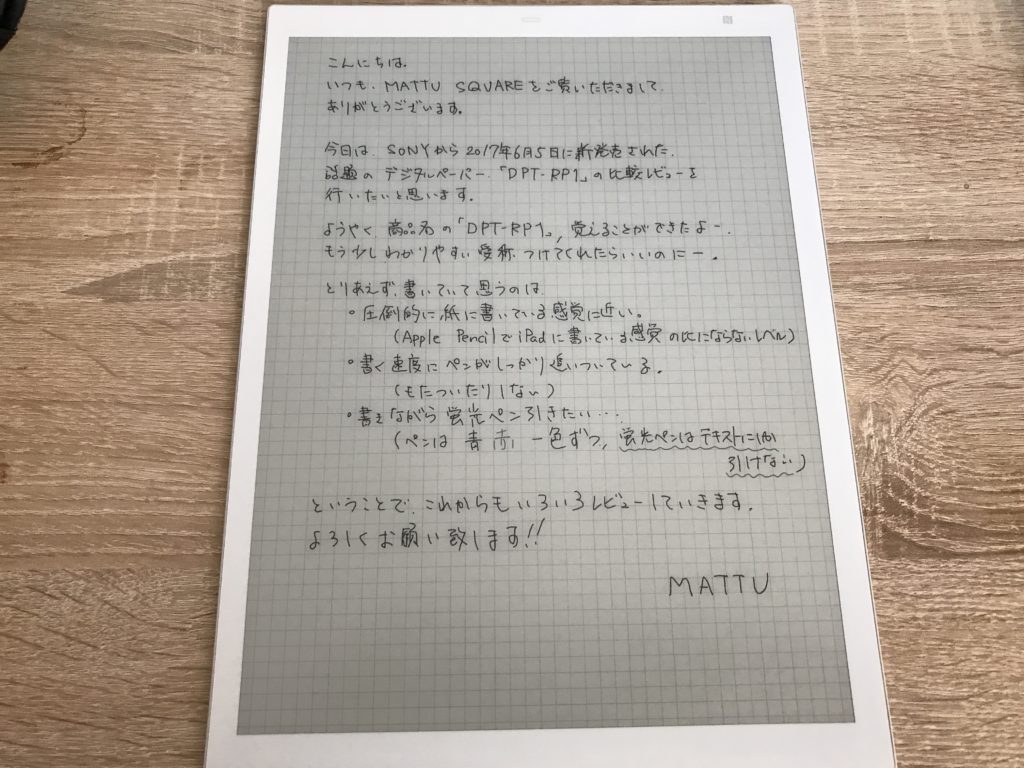 こんにちは。
いつも、MATTU SQUAREをご覧いただきまして
ありがとうございます。
今日は、SONYから2017年6月5日に新発売された、
話題の デジタルペーパー、「DPT-RP1」の比較レビューを
行いたいと思います。
ようやく、商品名の「DPT-RP1」、覚えることができたよー。
もう少しわかりやすい愛称、つけてくれたらいいのにー。
とりあえず、書いていて思うのは、
・圧倒的に、紙に書いている感覚に近い。
(Apple PencilでiPadに書いている感覚の比にならないレベル)
・書く速度にペンがしっかり追いついている。
(もたついたりしない)
・書きながら蛍光ペン引きたい…
(ペンは 青 赤 一色ずつ、蛍光ペンはテキストにしか
引けない)
ということで、これからもいろいろレビューしていきます。
よろしくお願い致します!!
MATTU